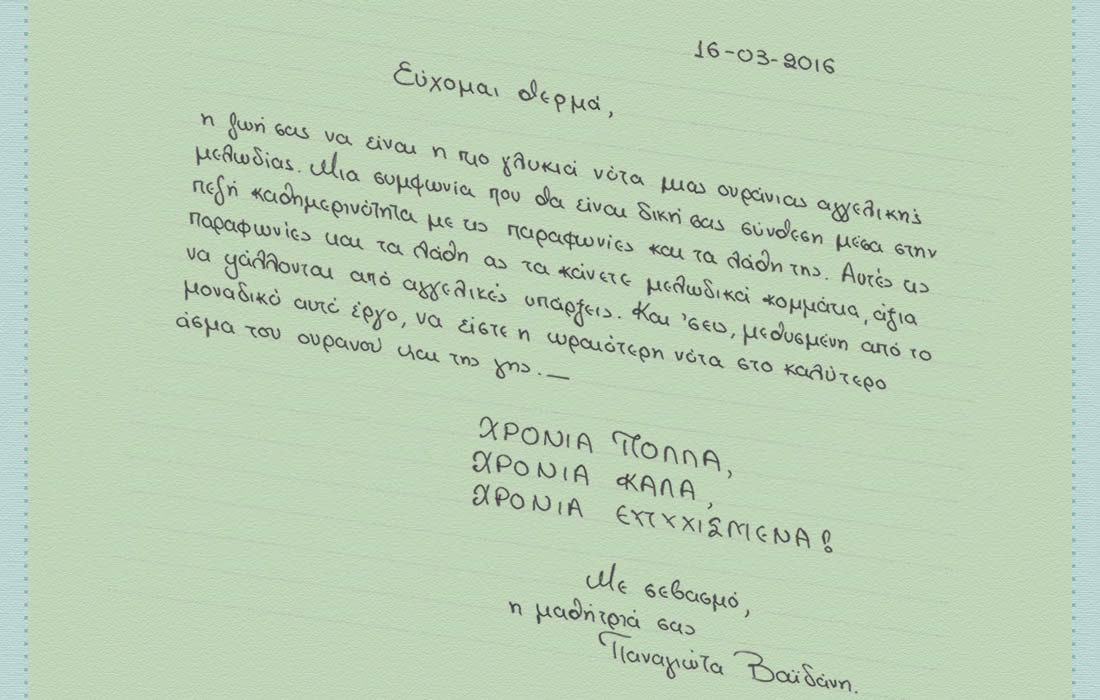 16-03-2016
Εύχομαι θερμά,
η ζωή σας να είναι η πιο γλυκιά νότα μιας ουράνιας αγγελικής
μελωδίας. Μια συμφωνία που θα είναι δική σας σύνθεση μέσα στην
πεζή καθημερινότητα με τις παραφωνίες και τα λάθη της. Αυτές τις
παραφωνίες και τα λάθη ας τα κάνετε μελωδικά κομμάτια, άξια
να ψάλλονται από αγγελικές υπάρξεις. Και 'σεις, μεθυσμένη από το
μοναδικό αυτό έργο, να είστε η ωραιότερη νότα στο καλύτερο
άσμα του ουρανού και της γης.—
ΧΡΟΝΙΑ ΠΟΛΛΑ,
ΧΡΟΝΙΑ ΚΑΛΑ,
ΧΡΟΝΙΑ ΕΥΤΥΧΙΣΜΕΝΑ!
Με σεβασμό,
η μαθήτριά σας
Παναγιώτα Βαϊδάνη.